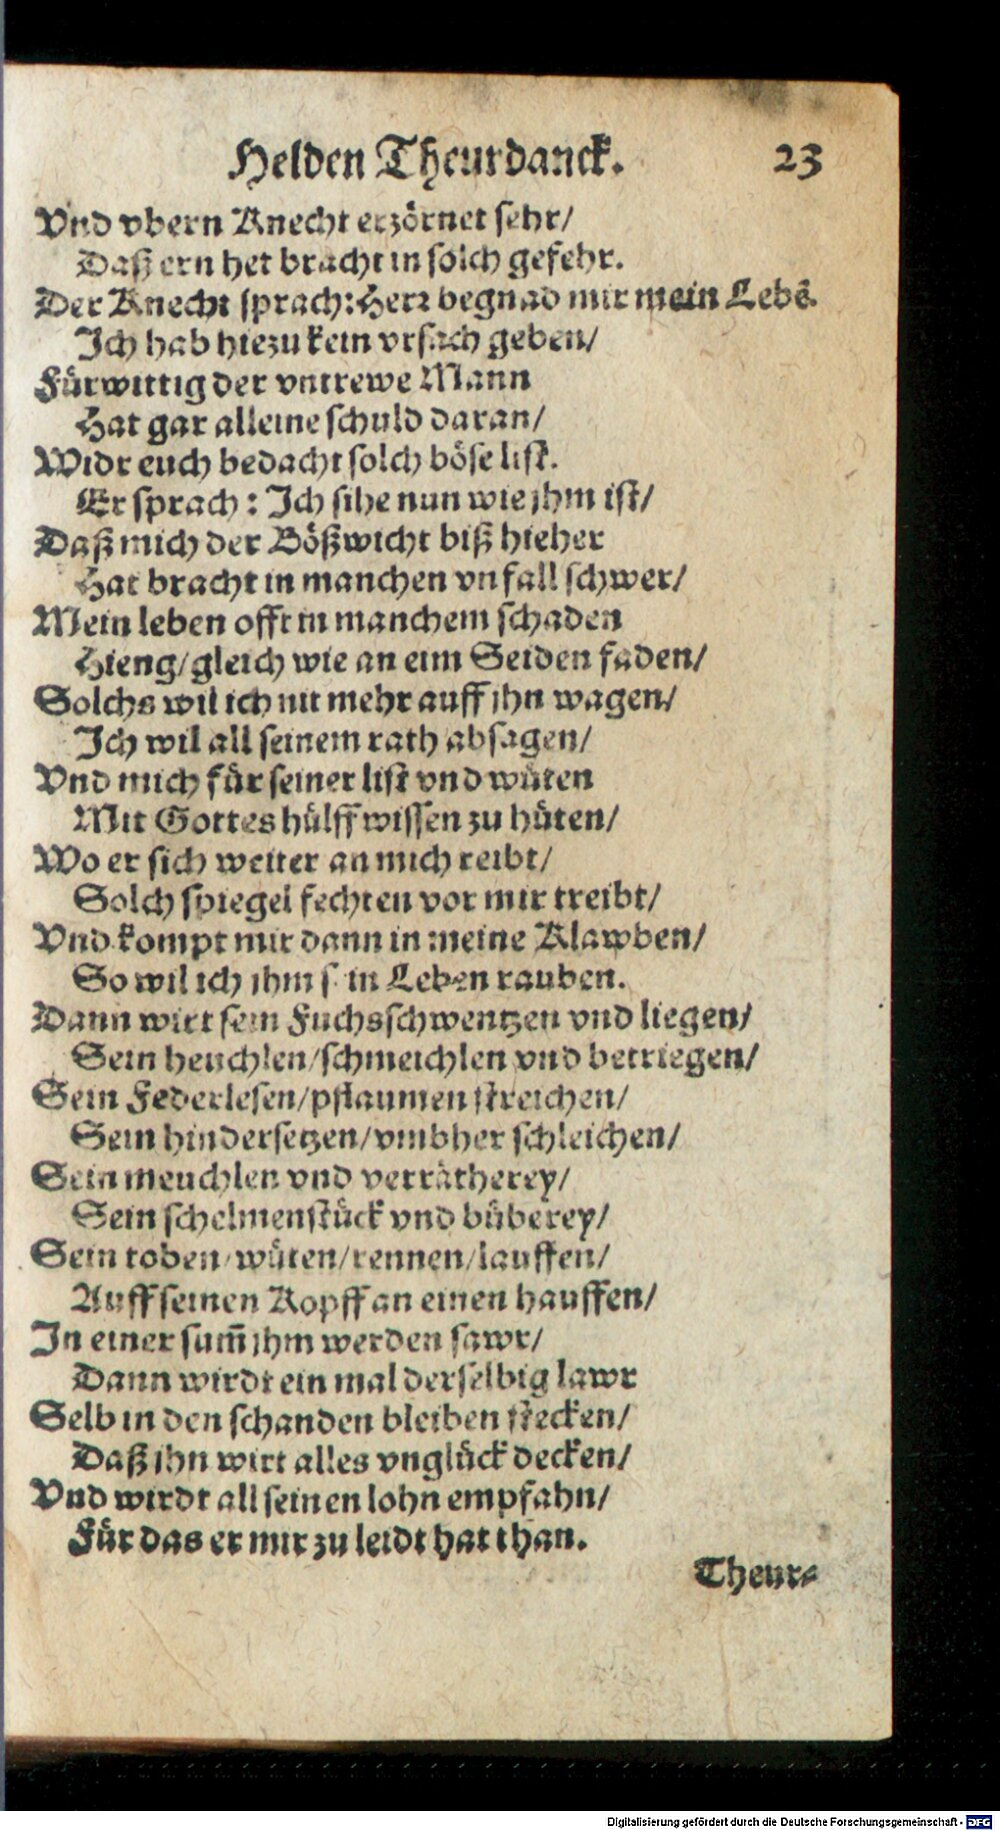 Helden Theurdanck. 23
Vnd vbern Knecht erzörnet sehr/
Daß ern het bracht in solch gefehr.
Der Knecht sprach: Herr begnad mir mein Lebē.
Ich hab hiezu kein vrsach geben/
Fürwittig der vntrewe Mann
Hat gar alleine schuld daran/
Widr euch bedacht solch böse list.
Er sprach: Ich sihe nun wie jhm ist/
Daß mich der Bößwicht biß hieher
Hat bracht in manchen vnfall schwer/
Mein leben offt in manchem schaden
Hieng/gleich wie an eim Seiden faden/
Solchs wil ich nit mehr auff jhn wagen/
Ich wil all seinem rath absagen/
Vnd mich für seiner list vnd wüten
Mit Gottes hülff wissen zu hüten/
Wo er sich weiter an mich reibt/
Solch spiegel fechten vor mir treibt/
Vnd kompt mir dann in meine Klawben/
So wil ich jhm sein Leben rauben.
Dann wirt sein Fuchsschwentzen vnd liegen/
Sein heuchlen/schmeichlen vnd betriegen/
Sein Federlesen/pflaumen streichen/
Sein hindersetzen/vmbher schleichen/
Sein meuchlen vnd verrätherey/
Sein schelmenstück vnd büberey/
Sein toben/wüten/rennen/lauffen/
Auff seinen Kopff an einen hauffen/
In einer sum̃ jhm werden sawr/
Dann wirdt ein mal derselbig lawr
Selb in den schanden bleiben stecken/
Daß jhn wirt alles vnglück decken/
Vnd wirdt all seinen lohn empfahn/
Für das er mir zu leidt hat than.
Theur⸗
Digitalisierung gefördert durch die Deutsche Forschungsgemeinschaft - DFG